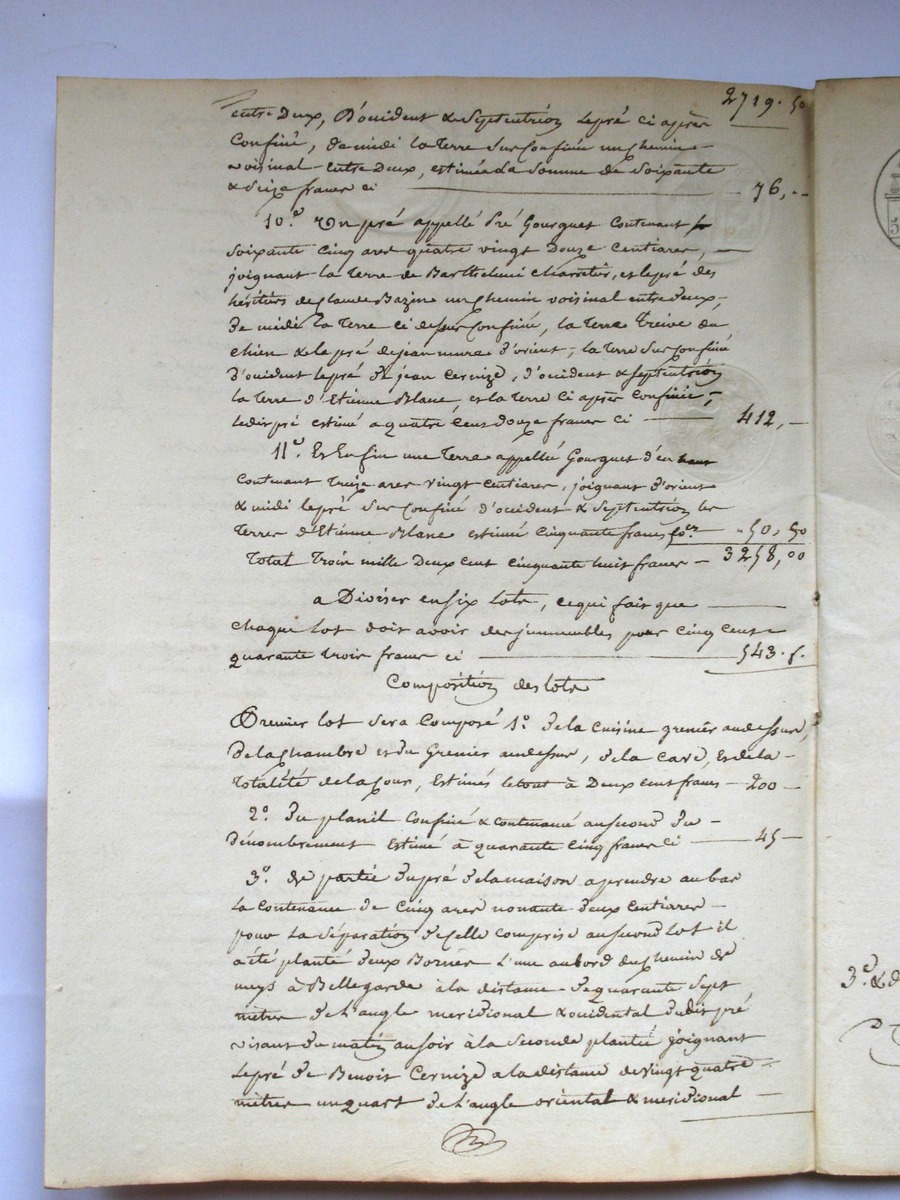 2719. 50
entre Deux, D'occident & Septentrion le pré ci après
Confiné, de midi la Terre Sus Confinée un chemin
voisinal entre Deux, estimée la Somme de Soixante
& Seize francs ci 76, -
10.° Un pré appellé Pré Gourguet Contenant
Soixante Cinq ares quatre vingt Douze Centiares,
joignant la Terre de Barthelemi Charretier, et le pré des
héritiers de Claude Bazine un chemin voisinal entre deux,
De midi la Terre ci dessus Confiné, la Terre Treive du
chien & le pré de jean mure d'orient, la Terre Sus Confiné
d'occident le pré de jean Cernize, d'occident & Septentrion
la Terre d'Etienne Blanc, et la Terre Ci après Confinée,
ledit pré estimé a quatre Cent Douze francs ci 412, -
11.° Et Enfin une Terre appellée Gourguet d'en haut
Contenant Treize ares vingt Centiares, joignant d'orient
& midi le pré Sus Confiné d'occident & Septentrion les
Terres d'Etienne Blanc estimé Cinquante francs 50, 50
Total Trois mille Deux Cent Cinquante huit francs - 3258,00
a Diviser en Six Lots, ce qui fait que
Chaque Lot doit avoir des jmmeubles pour Cinq Cent
quarante Trois francs ci 543. f.
Composition des Lots
Premier Lot Sera Composé 1.° de la Cuisine grenier au dessus,
de la Chambre et du Grenier au dessus, de la Cave, et de la
Totalité de la Cour, Estimés le tout à Deux Cent francs - 200 -
2.° Du planil Confiné & contenancé au second du
dénombrement Estimé à quarante Cinq francs Ci 45 -
3.° De partie du pré de la maison a prendre au bas
La Contenance de Cinq ares nonante deux Centiares
pour La Séparation de Celle Comprise au second Lot il
a été planté deux Bornes L'une au bord du Chemin de
meys à Bellegarde à la distance de quarante Sept
mètres de L'angle meridional & occidental dudit pré
visant du matin au soir à la Seconde plantée joignant
Le pré de Benoit Cernize a la distance de vingt quatre
mètres un quart de L'angle oriental & meridional
3.° & d